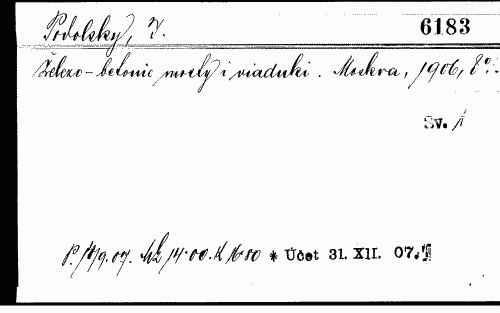 Podolsky, I.
6183
Železo-betonie mosty i viaduki. Moskva, 1906, 8°.
Sv. 1
P. 14/9.07. Mk 14.00. K 16.80 * Účet 31. XII. 07.